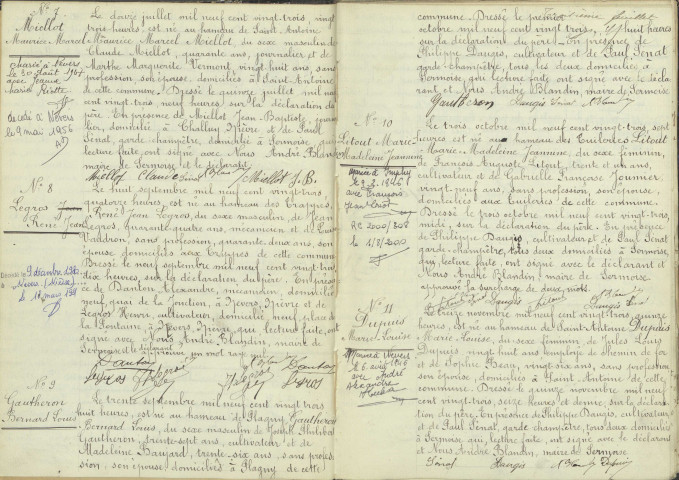 N° 7
Miellot
Maurice Marcel
Marié à Nevers
le 30 Août 1947
avec Jeanne
décédé à Nevers
le 9 mai 1956
Le douze juillet mil neuf cent vingt-trois, vingt
trois heures, est né au hameau de Saint Antoine
Maurice Marcel Miellot, du sexe masculin de
Claude Miellot, quarante ans, journalier et de
Marthe Marguerite Vermont, vingt-huit ans, sans
profession, son épouse, domiciliés à Saint-Antoine
de cette commune. Dressé le quinze juillet mil neuf
cent vingt-trois, neuf heures, sur la déclaration du
père. En présence de Miellot Jean-Baptiste,
domicilié à Challuy, Nièvre et de Paul
Sénat, garde champêtre, domicilié à Sermoise, qui
lecture faite, ont signé avec Nous André Blandin
maire de Sermoise et le déclarant.
Miellot Claude Sénat Blandin Miellot J.B.
N° 8
Legros
René Jean
Décédé le 9 décembre 1980
Nevers (Nièvre)
Le huit septembre mil neuf cent vingt-trois
quatorze heures, est né au hameau des Crappes
René Jean Legros, du sexe masculin, de Jean
Legros, quarante-quatre ans, mécanicien et de
sans profession, quarante-deux ans, son
épouse, domiciliés aux Crappes de cette commune
Dressé le neuf septembre mil neuf cent vingt-trois
dix heures, sur la déclaration du père. En présence
de Dautan Alexandre, mécanicien, domicilié
neuf, quai de la Jonction, à Nevers, Nièvre et de
Legros Henri, cultivateur, domicilié, neuf, place de
la Fontaine, à Nevers, Nièvre, qui, lecture faite, ont
signé avec Nous André Blandin, maire de
Sermoise et le déclarant
N° 9
Gautheron
Bernard Louis
Le trente septembre mil neuf cent vingt trois
huit heures, est né au hameau de Plagny Gautheron
Bernard Louis, du sexe masculin de Joseph Philibert
Gautheron, trente-sept ans, cultivateur et de
Madeleine Bayard, trente-six ans, sans profes
sion, son épouse, domiciliés à Plagny de cette
commune. Dressé le premier
octobre mil neuf cent vingt trois, huit heures
sur la déclaration du père. En présence de
Philippe Daugis, cultivateur et de Paul Sénat
garde-champêtre, tous les deux domiciliés à
Sermoise, qui, lecture faite ont signé avec le décla
rant et Nous André Blandin, maire de Sermoise
Gautheron Daugis Sénat Blandin
N° 10
Litout Marie
Madeleine Jeanne
Mariée à Imphy
avec François
R.C 2000/308
le 4/8/2000
Le trois octobre mil neuf cent vingt-trois, sept
heures est né au hameau des Tuileries Litout
Marie-Madeleine Jeanne, du sexe féminin,
de François Auguste Litout, trente et un ans,
cultivateur et de Gabrielle Françoise Jounier,
vingt-neuf ans, sans profession, son épouse,
domiciliés aux Tuileries de cette commune.
Dressé le trois octobre mil neuf cent vingt-trois,
midi, sur la déclaration du père. En présence
de Philippe Daugis, cultivateur et de Paul Sénat
garde-champêtre, tous deux domiciliés à Sermoise
qui, lecture faite, ont signé avec le déclarant et
Nous André Blandin, maire de Sermoise
approuvé la surcharge de deux mots.
Daugis Litout Blandin
N° 11
Dupuis
Marie-Louise
Mariée à Nevers
avec André
Alexandre
Le treize novembre mil neuf cent vingt-trois, quinze
heures, est né au hameau de Saint-Antoine Dupuis
Marie Louise, du sexe féminin, de Jules Louis
Dupuis vingt huit ans, employé de chemin de fer
et de Sophie Beau, vingt-six ans, sans profession
son épouse, domiciliés à Saint Antoine de cette
commune. Dressé le quinze novembre mil neuf
cent vingt-trois, seize heures et demie, sur la déclara
tion du père. En présence de Philippe Daugis, cultivateur
et de Paul Sénat, garde champêtre, tous deux domiciliés
à Sermoise, qui, lecture faite, ont signé avec le déclarant
et Nous André Blandin, maire de Sermoise
Sénat Daugis Blandin Dupuis